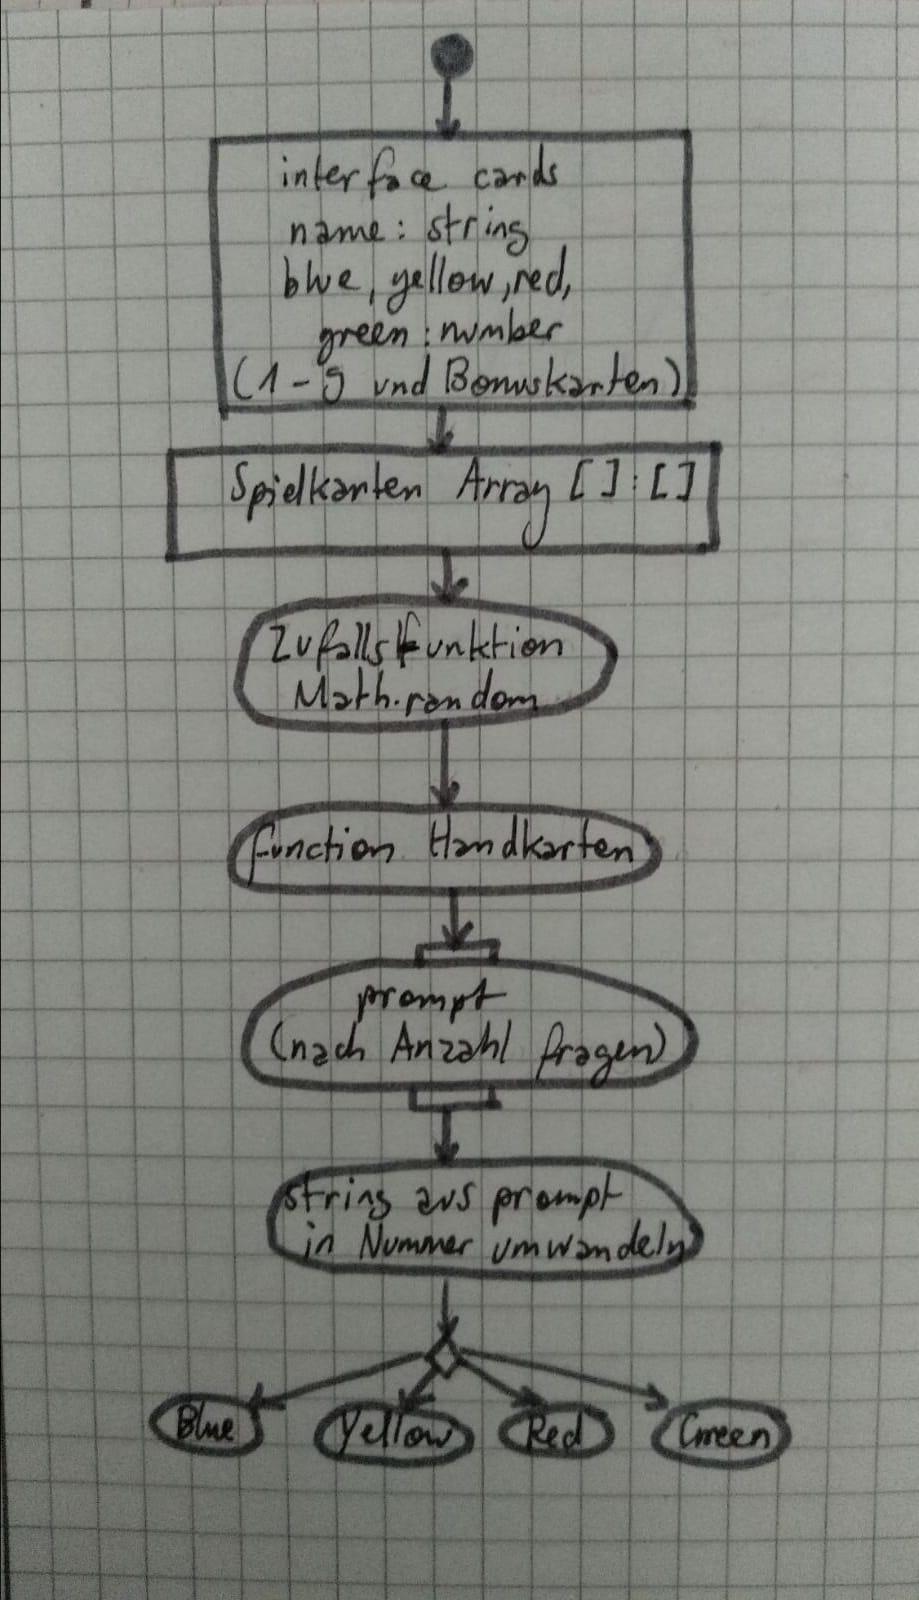 interface cards
name: string
blue, yellow, red,
green: number
(1-9 und Bonuskarten)
Spielkarten Array []:[]
Zufallsfunktion
Math.random
function Handkarten
prompt
(nach Anzahl fragen)
string aus prompt
in Nummer umwandeln
Blue Yellow Red Green